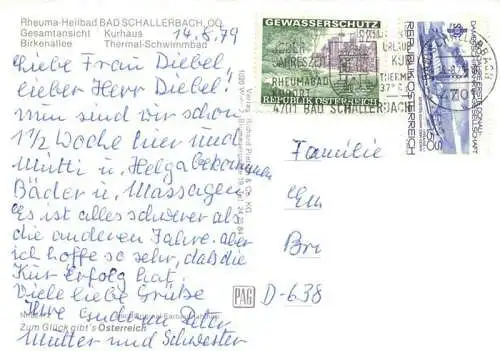 Rheuma-Heilbad BAD SCHALLERBACH, OÖ.
Gesamtansicht Kurhaus
Birkenallee Thermal-Schwimmbad
14.8.79
Liebe Frau Diebel,
lieber Herr Diebel!
nun sind wir schon
1 1/2 Woche hier und
Mutti u. Helga bekommen
Bäder u. Massagen
Es ist alles schwerer als
die anderen Jahre. aber
ich hoffe so sehr, daß die
Kur Erfolg hat.
Viele liebe Grüße
Ihre anderen
Mutter und Schwester
Zum Glück gibt's Österreich
GEWÄSSERSCHUTZ
REPUBLIK ÖSTERREICH
JEDER
JAHRESZEIT
URLAUB
KUR
RHEUMABAD THERME
KURORT 37°
4701 BAD SCHALLERBACH
REPUBLIK ÖSTERREICH
4701
Familie
Em
Br
PAG
D-638